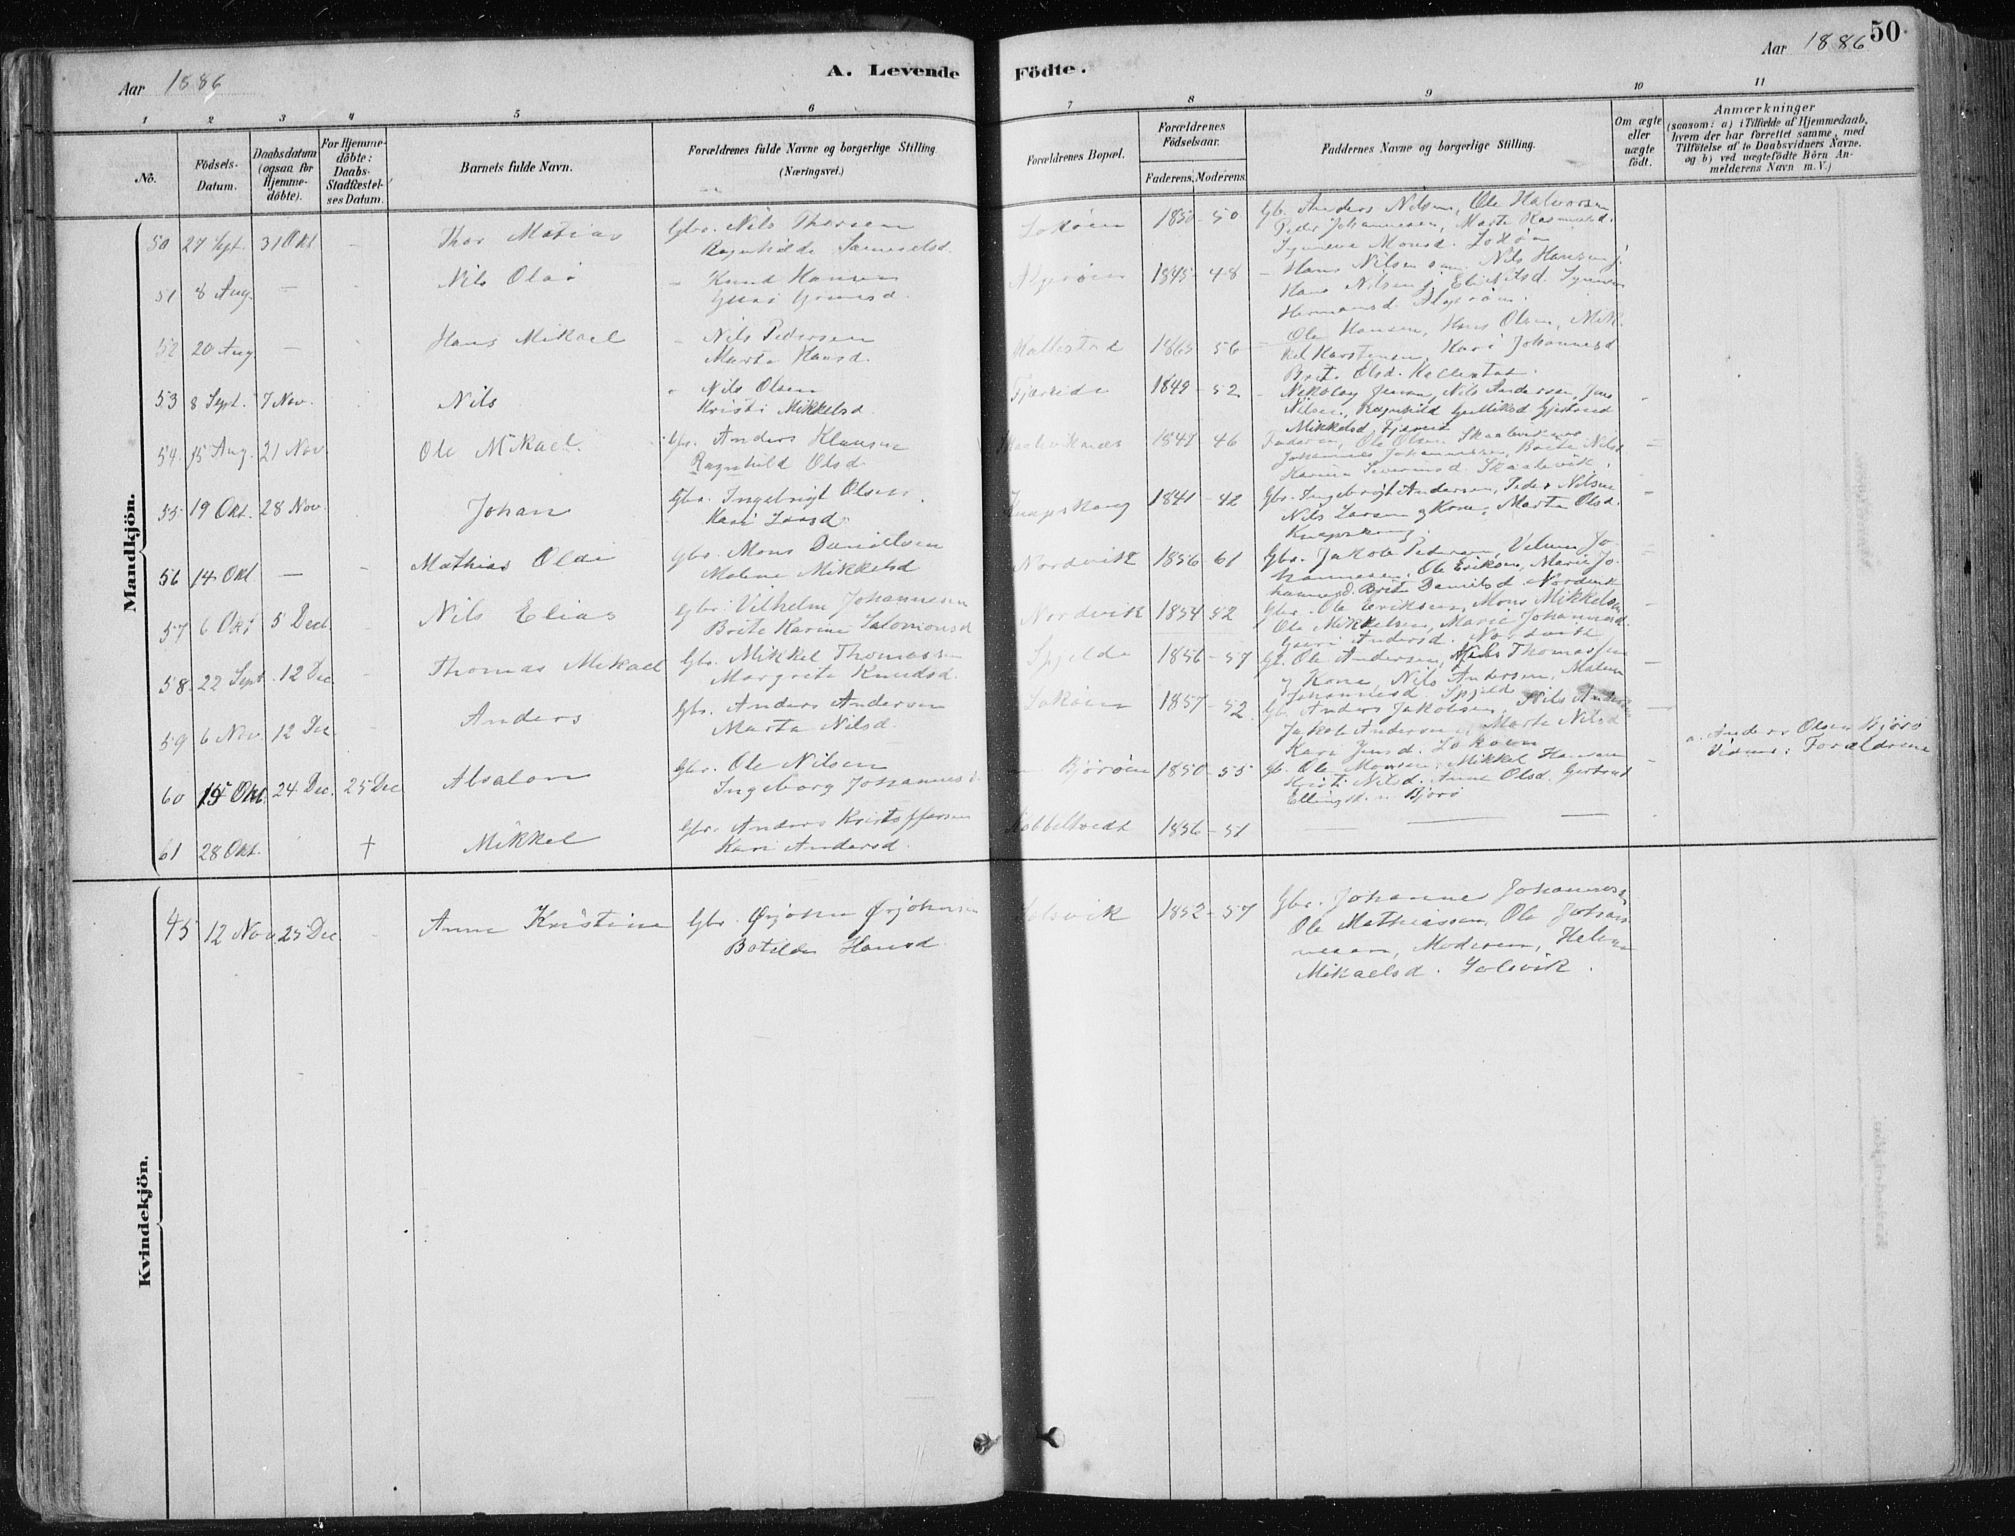 Aar 1886
A. Levende
Födte.
Aar 1886
50
1 2 3 4 5 6 7 8 9 10 11
No.
Födsels-Datum.
Daabsdatum (ogsaa for Hjemme-døbte).
For Hjemme-döbte: Daabs-Stadfæstel-ses Datum.
Barnets fulde Navn.
Forældrenes fulde Navne og borgerlige Stilling (Næringsvei.)
Forældrenes Bopæl.
Forældrenes Födselsaar.
Faderens. Moderens.
Faddernes Navne og borgerlige Stilling.
Om ægte eller uægte födt.
Anmærkninger
(saasom: a) i Tilfælde af Hjemmedaab,
hvem der har forrettet samme, med
Tilföielse af to Daabsvidners Navne.
og b) ved uægtefödte Börn An-
melderens Navn m. V.)
Mandkjön.
50 27 Sept. 31 Okt - Thor Matias Gbr. Nils Thorsen Lokøen 1850 - 50 Gb. Anders Nilsen, Ole Halvorsen
Ragnhilde Samuelsd. Peder Johannesen, Marta Rasmusd.
Synneva Monsd. Lokøen
51 8 Aug. - Nils Olai - Knud Hansen Algerøen 1845 - 48 - Hans Nilsen sen. Nils Hansen j.
Hans Nilsen j.
Hermansd. Algerøen.
52 20 Aug - Hans Mikael - Nils Pedersen Kallestad 1865 56 Ole Hansen, Hans Olsen, Mik-
Marta Hansd. kel Karstensen, Kari Johannesd
Brit. Olsd. Kallestad.
53 8 Sept. 7 Nov. Nils - Nils Olsen 1849 - 52 - Nikolay Jensen, Nils Andersen, Jens
Kristi Mikkelsd Nilsen, Ragnhild
Mikkelsd,
54. 15 Aug. 21 Nov. Ole Mikael. Gbr. Anders Klausen Skaaleviknæs 1847 - 46 Faderen, Ole Olsen Skaaleviknæs
Ragnhild Olsd. Johannes Johannessen, Brita Nilsd
Severinsd. Skaalevik.
55 19 Okt. 28 Nov. Johan Gbr. Ingebrigt Olsen. Knapskaug 1841 - 42 Gbr. Ingebrigt Andersen, Peder Nilsen
Kari Larsd. Nils Larsen og Kone, Marta Olsd.
Knapskaug.
56 14 Okt - - Mathias Olai Gbr. Mons Daniellsen Nordvik 1856 61 Gbr. Jakob Pedersen, Jo-
Malene Mikkelsd hannesen, Ole Eriksen, Marie Jo-
hannesd. Brite Danielsd. Nordvik
57 6 Okt 5 Decb - Nils Elias Gbr. Vilhelm Johannesen Nordvik 1854 52 Gbr. Ole Eriksen, Mons Mikkelsen
Brite Karine Salomonsd Ole Mikkelsen, Marie Johannesd.
Andersd. Nordvik
58. 22 Sept. 12 Dec Thomas Mikael Gbr. Mikkel Thomassen Spjelde 1856 - 57 Gb. Ole Andersen, Nils Thomassen
Margrete Knudsd. og Kone, Nils Andersen, Malene
Johannesd. Spjelde
59 6 Nov. 12 Dec - Anders Gbr. Anders Andersen Lokøen 1857 - 52. Gb. Anders Jakobsen, Nils Anders
Marta Nilsd. Jakob Andersen, Marte Nilsd
Kari Jensd. Lokøen
60 15 Okt. 24 Dec. 25 Dec Absalon Gbr. Ole Nilsen Bjørøen 1850 - 55 Gb. Ole Monsen, Mikkel Hansen
Ingeborg Johannesd Kristi Nilsd. Anne Olsd. Gertrud
Ellingsd. Bjørø
a. Anders Olsen Bjørø
Vidner: Forældrene
61 28 Okt. † Mikkel Gbr. Anders Kristoffersen Kobbeltvedt 1856 - 51 - - -
Kari Andersd.
Kvindekjön.
45 12 Nov 25 Dec - Anne Kristine Gbr. Ørjohn Ørjohnsen Solsvik 1852 - 57 Gbr. Johannes Johannes
Botilde Hansd. Ole Mathiassen, Ole Johan-
nesen, Moderen,
Mikaelsd. Solsvik.